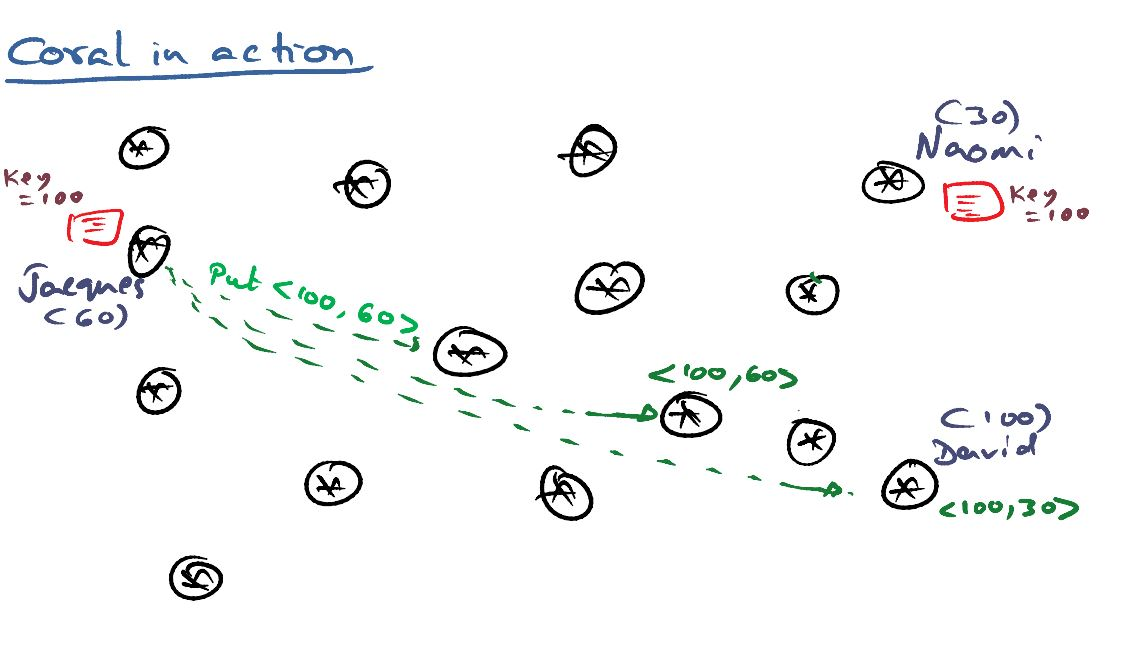 Coral in action
(30)
Naomi
Key
=100
Key
=100
Jacques
(60)
Put <100,60>
<100,60>
(100)
David
<100,30>